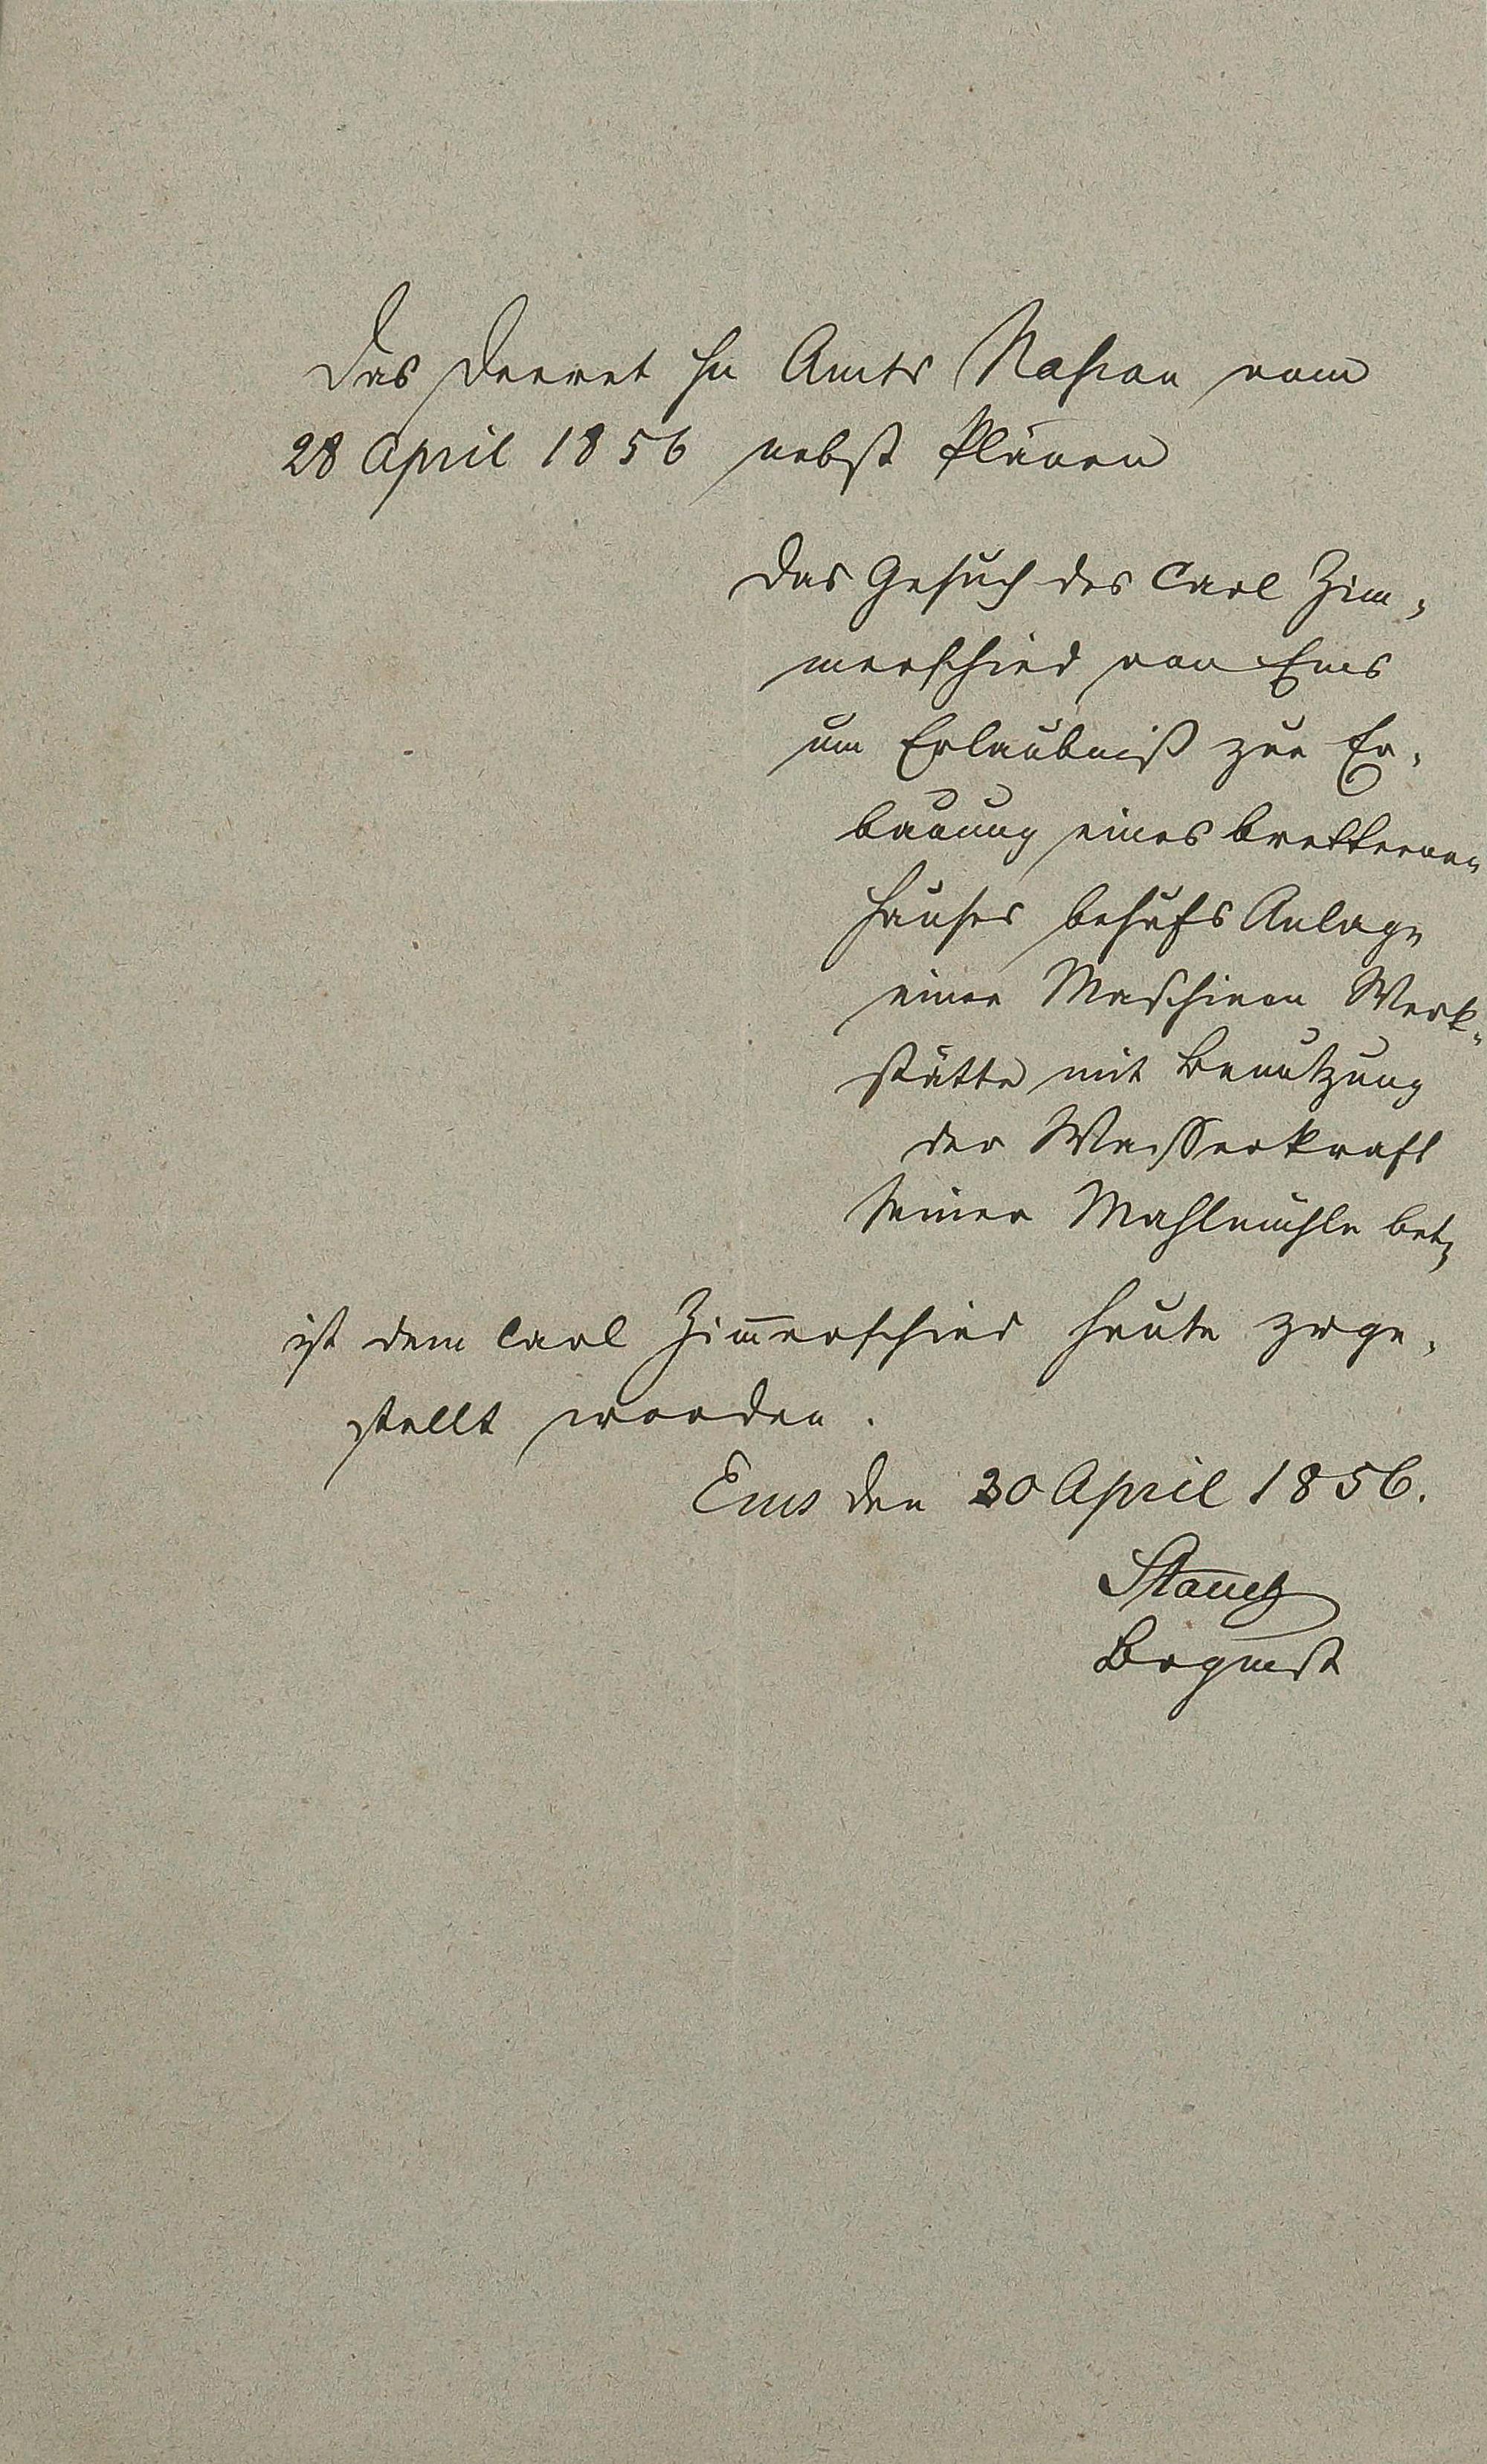 Das Decret Hzl Amts Nassau vom
28 April 1856 nebst Plänen
Das Gesuch des Carl Zim-
merschied von Ems
um Erlaubniß zur Er-
bauung eines bretternen
Hauses behufs Anlage
einer Maschinen Werk-
stätte mit Benutzung
der Wasserkraft
seiner Mahlmühle betr
ist dem Carl Zim̅erschied heute zuge-
stellt worden.
Ems den 30 April 1856.
Brgmst